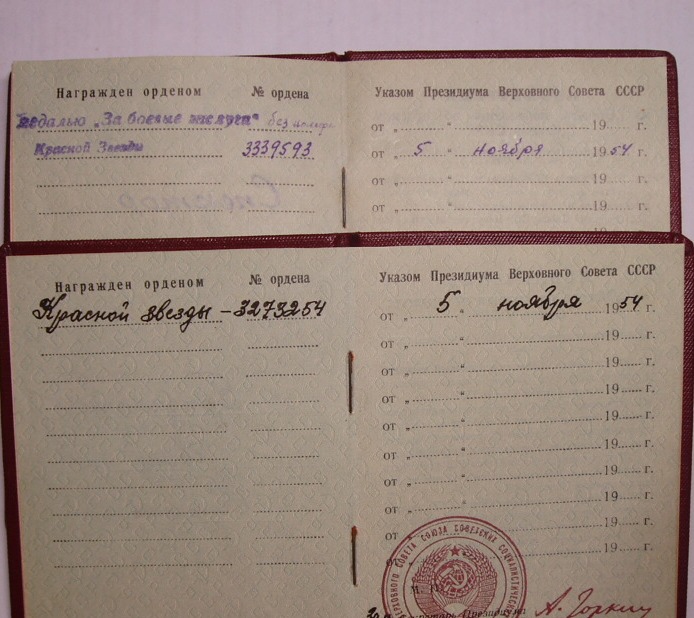 Награжден орденом № ордена Указом Президиума Верховного Совета СССР
медалью „За боевые заслуги" без номера от „ “ 19 г.
Красной Звезды 3339593 от „ 5 “ ноября 1954 г.
от „ “ 19 г.
от „ “ 19 г.
Награжден орденом № ордена Указом Президиума Верховного Совета СССР
Красной звезды – 3273254 от „ 5 “ ноября 1954 г.
от „ “ 19 г.
от „ “ 19 г.
от „ “ 19 г.
от „ “ 19 г.
от „ “ 19 г.
от „ “ 19 г.
от „ “ 19 г.
от 19 г.
ВЕРХОВНОГО СОВЕТА СОЮЗА СОВЕТСКИХ СОЦИАЛИСТИЧЕСК
М. П.
Президиума А. Горкин